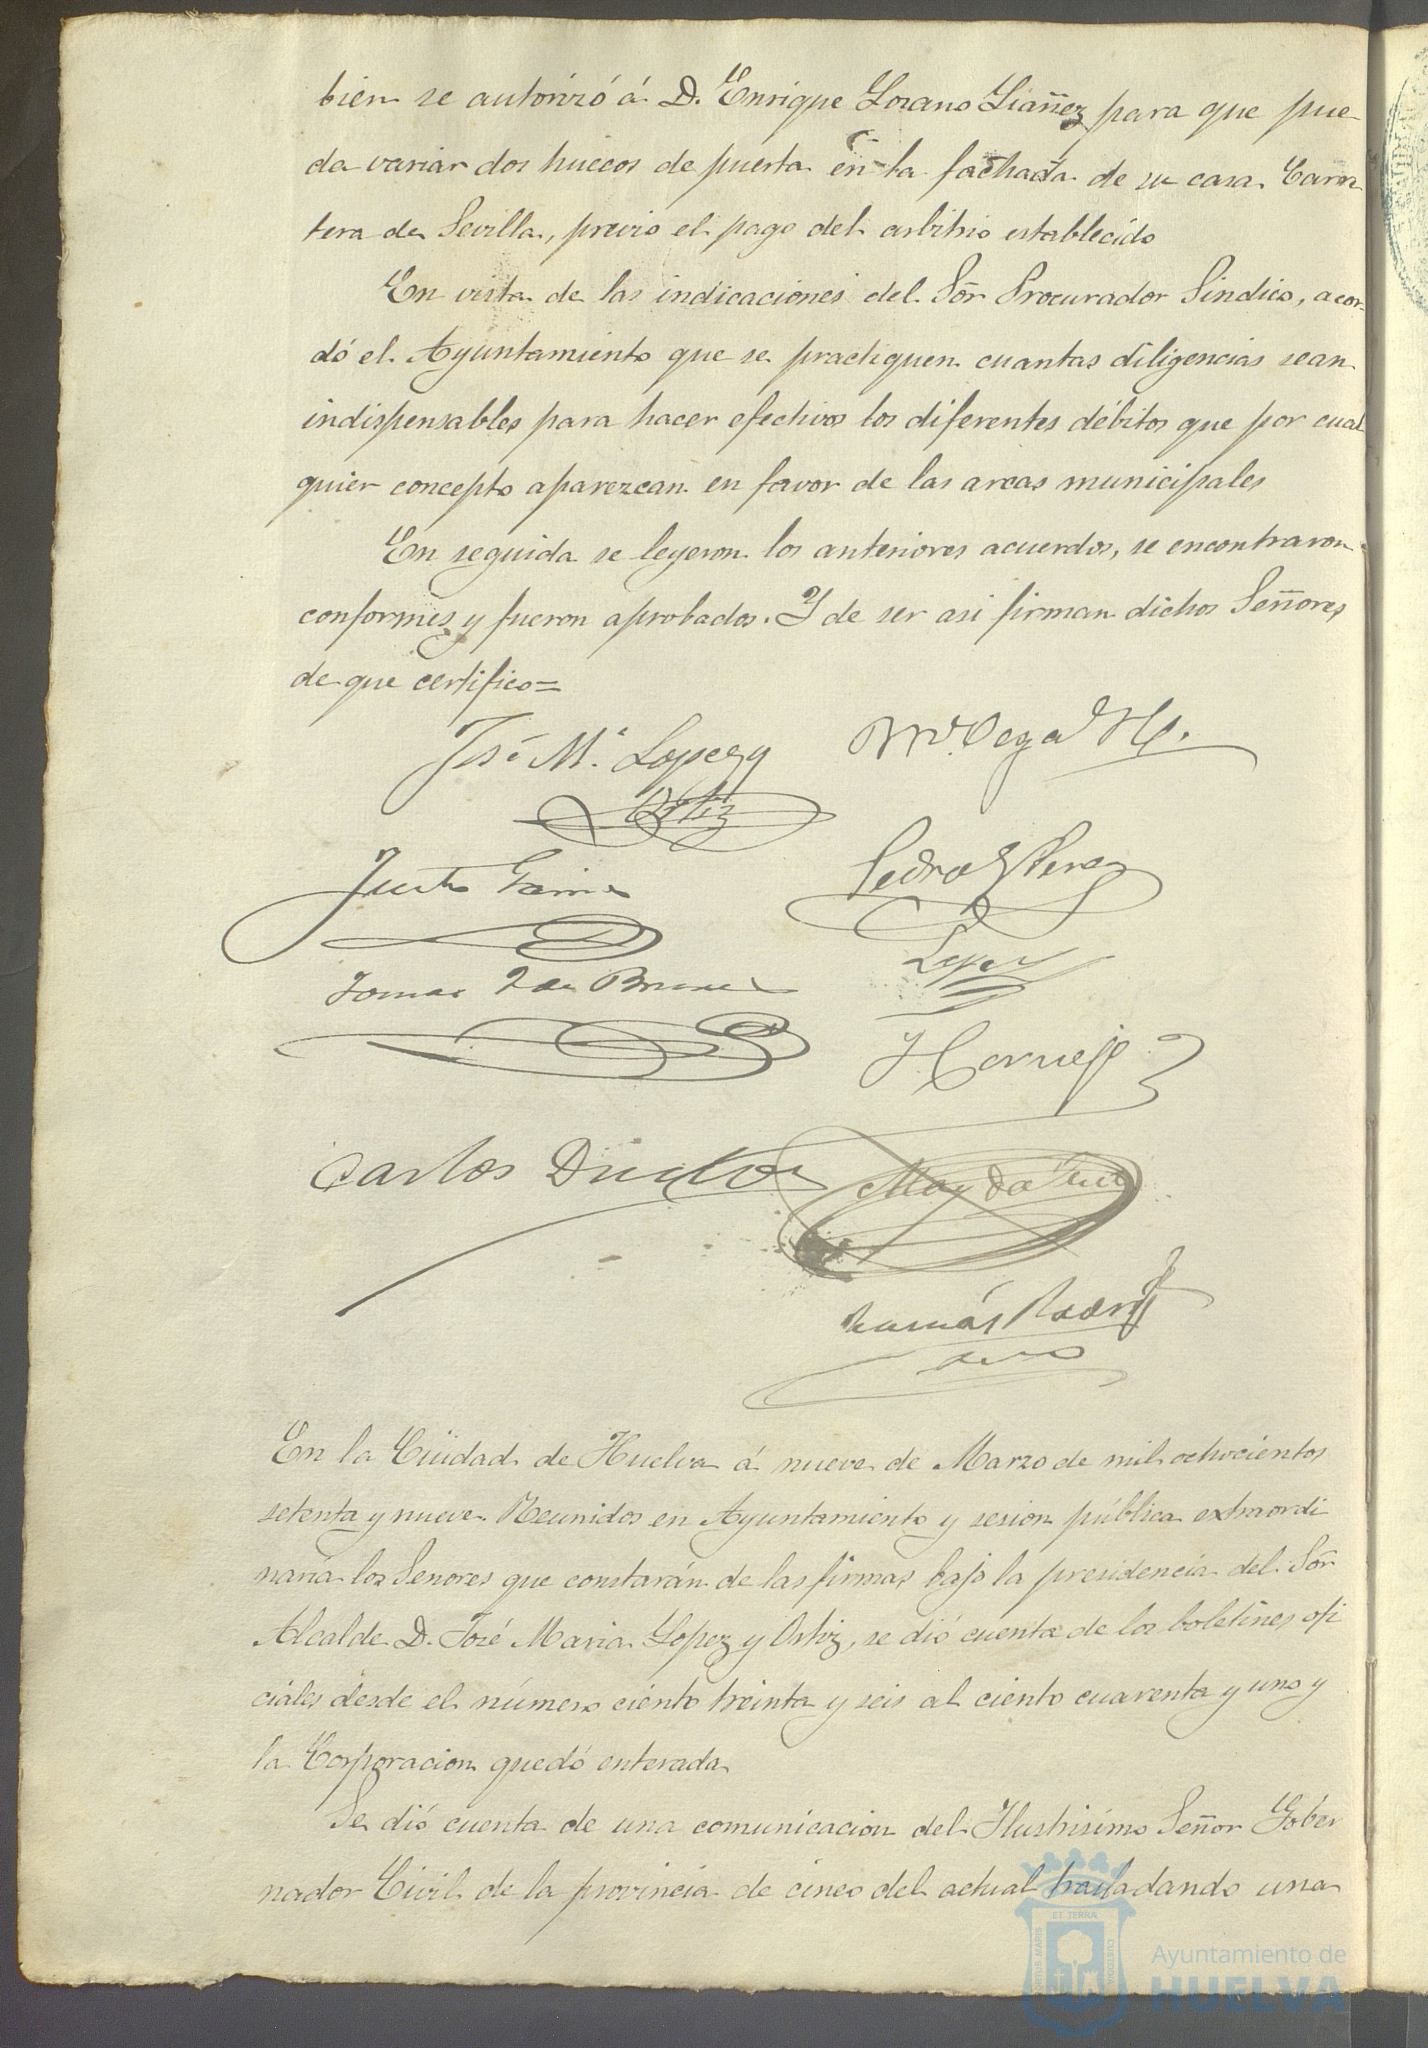 bien se autorizó á D. Enrique Lozano Liáñez para que pue-
da variar dos huecos de puerta en la fachada de su casa Carre
tera de Sevilla, previo el pago del arbitrio establecido
En vista de las indicaciones del Sór Procurador Sindico, acor-
dó el Ayuntamiento que se practiquen cuantas diligencias sean
indispensables para hacer efectivos los diferentes débitos que por cual
quier concepto aparezcan en favor de las arcas municipales
En seguida se leyeron los anteriores acuerdos, se encontraron
conformes y fueron aprobados. Y de ser asi firman dichos Señores,
de que certifico=
José Mª. Lopez y
Ortiz
Vega
Justo
Pedro Perez
Lopez
Tomas
Hornejo
Carlos
Tomás Rodrig
En la Ciudad de Huelva á nueve de Marzo de mil ochocientos
setenta y nueve. Reunidos en Ayuntamiento y sesion pública extraordi
naria los Señores que constarán de las firmas bajo la presidencia del Sór
Alcalde D. José Maria Lopez y Ortiz, se dió cuenta de los boletines ofi
ciales desde el número ciento treinta y seis al ciento cuarenta y uno y
la Corporacion quedó enterada
Se dió cuenta de una comunicacion del Ilustrisimo Señor Gober
nador Civil de la provincia de cinco del actual trasladando una
ET TERRÆ
Ayuntamiento de
HUELVA